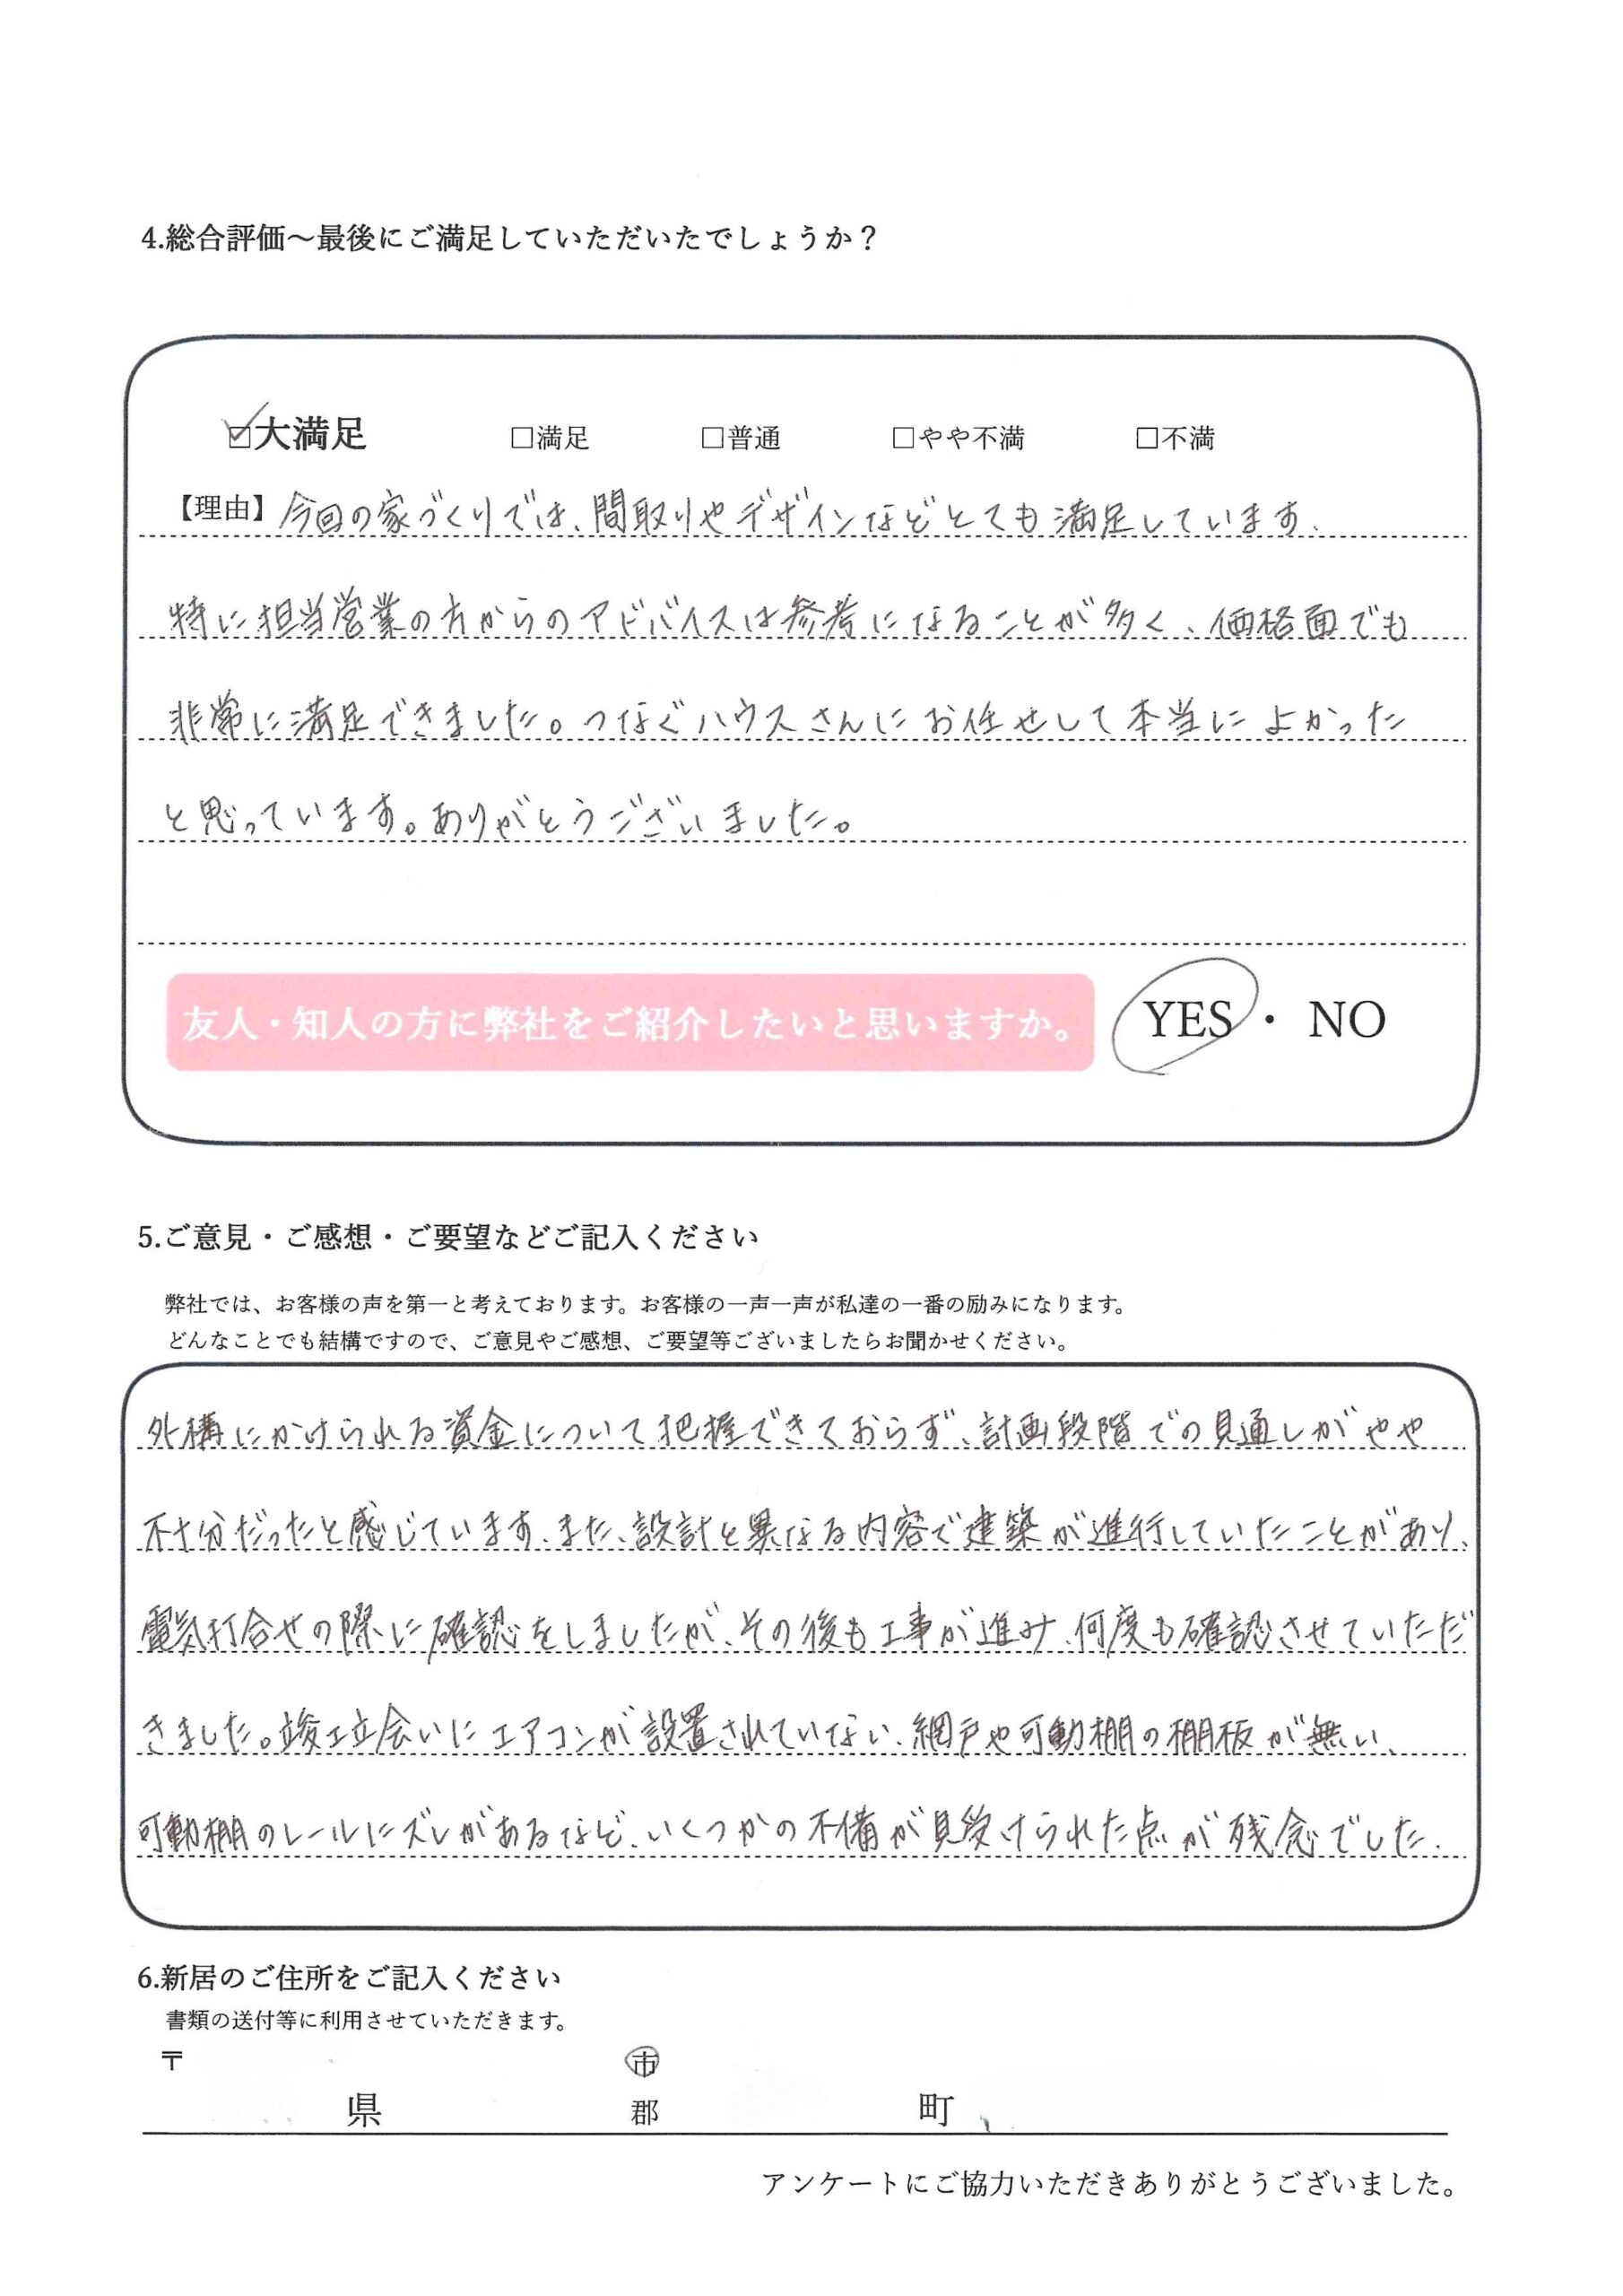 4.総合評価～最後にご満足していただいたでしょうか？
☑大満足 □満足 □普通 □やや不満 □不満
【理由】今回の家づくりでは、間取りやデザインなどとても満足しています、
特に担当営業の方からのアドバイスは参考になることが多く、価格面でも
非常に満足できました。つなぐハウスさんにお任せして本当によかった
と思っています。ありがとうございました。
友人・知人の方に弊社をご紹介したいと思いますか。 YES・NO
5.ご意見・ご感想・ご要望などご記入ください
弊社では、お客様の声を第一と考えております。お客様の一声一声が私達の一番の励みになります。
どんなことでも結構ですので、ご意見やご感想、ご要望等ございましたらお聞かせください。
外構にかけられる資金について把握できておらず、計画段階での見通しがやや
不十分だったと感じています、また、設計と異なる内容で建築が進行していたことがあり、
電気打合せの際に確認をしましたが、その後も工事が進み、何度も確認させていただ
きました。竣工立会いにエアコンが設置されていない、網戸や可動棚の棚板が無い、
可動棚のレールにズレがあるなど、いくつかの不備が見受けられた点が残念でした、
6.新居のご住所をご記入ください
書類の送付等に利用させていただきます。
〒 市
県 郡 町
アンケートにご協力いただきありがとうございました。